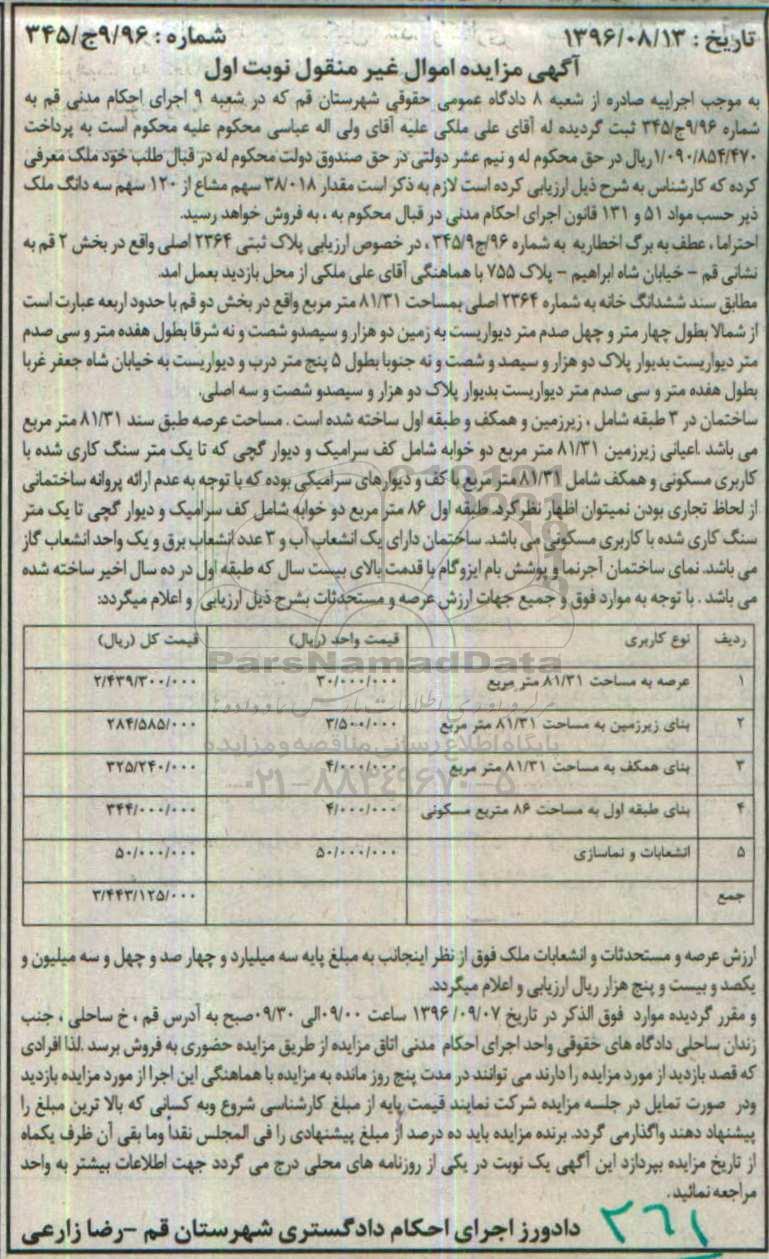 تاریخ : ۱۳۹۶/۰۸/۱۳
شماره : ۹/۹۶ج/۳۴۵
آگهی مزایده اموال غیر منقول نوبت اول
به موجب اجراییه صادره از شعبه ۸ دادگاه عمومی حقوقی شهرستان قم که در شعبه ۹ اجرای احکام مدنی قم به
شماره ۹/۹۶ج/۳۴۵ ثبت گردیده له آقای علی ملکی علیه آقای ولی اله عباسی محکوم علیه محکوم است به پرداخت
۱/۰۹۰/۸۵۴/۴۷۰ریال در حق محکوم له و نیم عشر دولتی در حق صندوق دولت محکوم له در قبال طلب خود ملک معرفی
کرده که کارشناس به شرح ذیل ارزیابی کرده است لازم به ذکر است مقدار ۳۸/۰۱۸ سهم مشاع از ۱۲۰ سهم سه دانگ ملک
ذیر حسب مواد ۵۱ و ۱۳۱ قانون اجرای احکام مدنی در قبال محکوم به ، به فروش خواهد رسید.
احتراما ، عطف به برگ اخطاریه به شماره ۹۶/ج۳۴۵/۹ ، در خصوص ارزیابی پلاک ثبتی ۲۳۶۴ اصلی واقع در بخش ۲ قم به
نشانی قم – خیابان شاه ابراهیم – پلاک ۷۵۵ با هماهنگی آقای علی ملکی از محل بازدید بعمل امد.
مطابق سند ششدانگ خانه به شماره ۲۳۶۴ اصلی بمساحت ۸۱/۳۱ متر مربع واقع در بخش دو قم با حدود اربعه عبارت است
از شمالا بطول چهار متر و چهل صدم متر دیواریست به زمین دو هزار و سیصدو شصت و نه شرقا بطول هفده متر و سی صدم
متر دیواریست بدیوار پلاک دو هزار و سیصد و شصت و نه جنوبا بطول ۵ پنج متر درب و دیواریست به خیابان شاه جعفر غربا
بطول هفده متر و سی صدم متر دیواریست بدیوار پلاک دو هزار و سیصدو شصت و سه اصلی.
ساختمان در ۳ طبقه شامل ، زیرزمین و همکف و طبقه اول ساخته شده است . مساحت عرصه طبق سند ۸۱/۳۱ متر مربع
می باشد .اعیانی زیرزمین ۸۱/۳۱ متر مربع دو خوابه شامل کف سرامیک و دیوار گچی که تا یک متر سنگ کاری شده با
کاربری مسکونی و همکف شامل ۸۱/۳۱ متر مربع با کف و دیوارهای سرامیکی بوده که با توجه به عدم ارائه پروانه ساختمانی
از لحاظ تجاری بودن نمیتوان اظهار نظر کرد. طبقه اول ۸۶ متر مربع دو خوابه شامل کف سرامیک و دیوار گچی تا یک متر
سنگ کاری شده با کاربری مسکونی می باشد. ساختمان دارای یک انشعاب آب و ۳ عدد انشعاب برق و یک واحد انشعاب گاز
می باشد. نمای ساختمان آجرنما و پوشش بام ایزوگام با قدمت بالای بیست سال که طبقه اول در ده سال اخیر ساخته شده
می باشد . با توجه به موارد فوق و جمیع جهات ارزش عرصه و مستحدثات بشرح ذیل ارزیابی و اعلام میگردد:
ردیف نوع کاربری قیمت واحد (ریال) قیمت کل (ریال)
۱ عرصه به مساحت ۸۱/۳۱ متر مربع ۳۰/۰۰۰/۰۰۰ ۲/۴۳۹/۳۰۰/۰۰۰
۲ بنای زیرزمین به مساحت ۸۱/۳۱ متر مربع ۳/۵۰۰/۰۰۰ ۲۸۴/۵۸۵/۰۰۰
۳ بنای همکف به مساحت ۸۱/۳۱ متر مربع ۴/۰۰۰/۰۰۰ ۳۲۵/۲۴۰/۰۰۰
۴ بنای طبقه اول به مساحت ۸۶ متربع مسکونی ۴/۰۰۰/۰۰۰ ۳۴۴/۰۰۰/۰۰۰
۵ انشعابات و نماسازی ۵۰/۰۰۰/۰۰۰ ۵۰/۰۰۰/۰۰۰
جمع ۳/۴۴۳/۱۲۵/۰۰۰
ParsNamadData
پایگاه اطلاع رسانی مناقصه و مزایده
۰۲۱-۸۸۳۴۹۶۷۰-۵
ارزش عرصه و مستحدثات و انشعابات ملک فوق از نظر اینجانب به مبلغ پایه سه میلیارد و چهار صد و چهل و سه میلیون و
یکصد و بیست و پنج هزار ریال ارزیابی و اعلام میگردد.
و مقرر گردیده موارد فوق الذکر در تاریخ ۱۳۹۶/۰۹/۰۷ ساعت ۰۹/۰۰الی ۰۹/۳۰صبح به آدرس قم ، خ ساحلی ، جنب
زندان ساحلی دادگاه های حقوقی واحد اجرای احکام مدنی اتاق مزایده از طریق مزایده حضوری به فروش برسد .لذا افرادی
که قصد بازدید از مورد مزایده را دارند می توانند در مدت پنج روز مانده به مزایده با هماهنگی این اجرا از مورد مزایده بازدید
ودر صورت تمایل در جلسه مزایده شرکت نمایند قیمت پایه از مبلغ کارشناسی شروع وبه کسانی که بالا ترین مبلغ را
پیشنهاد دهند واگذارمی گردد. برنده مزایده باید ده درصد از مبلغ پیشنهادی را فی المجلس نقداً وما بقی آن ظرف یکماه
از تاریخ مزایده بپردازد این آگهی یک نوبت در یکی از روزنامه های محلی درج می گردد جهت اطلاعات بیشتر به واحد
مراجعه نمائید.
دادورز اجرای احکام دادگستری شهرستان قم –رضا زارعی
۳۶۱